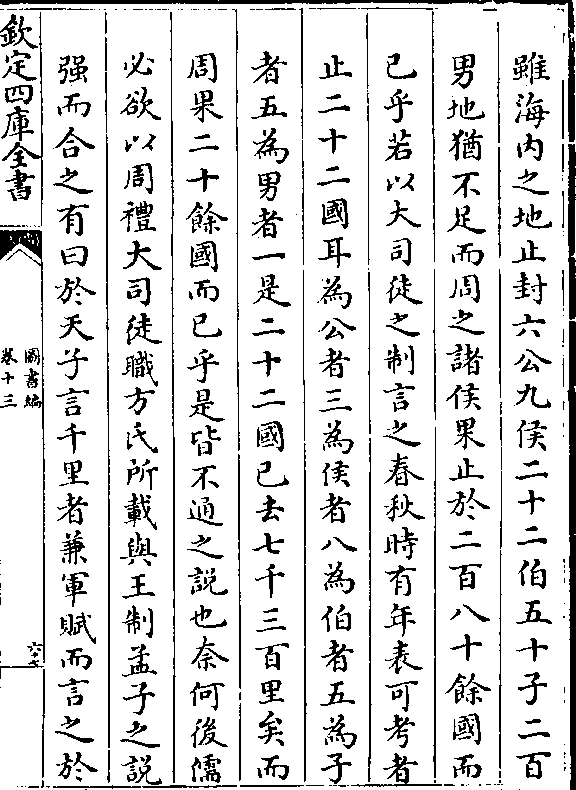 雖海内之地止封六公九侯二十二伯五十子二百
男地猶不足而周之諸侯果止於二百八十餘國而
已乎若以大司徒之制言之春秋時有年表可考者
止二十二國耳為公者三為侯者八為伯者五為子
者五為男者一是二十二國已去七千三百里矣而
周果二十餘國而已乎是皆不通之説也柰何後儒
必欲以周禮大司徒職方氏所載與王制孟子之説
强而合之有曰於天子言千里者兼軍賦而言之於
欽定四庫全書
圖書編
卷十三